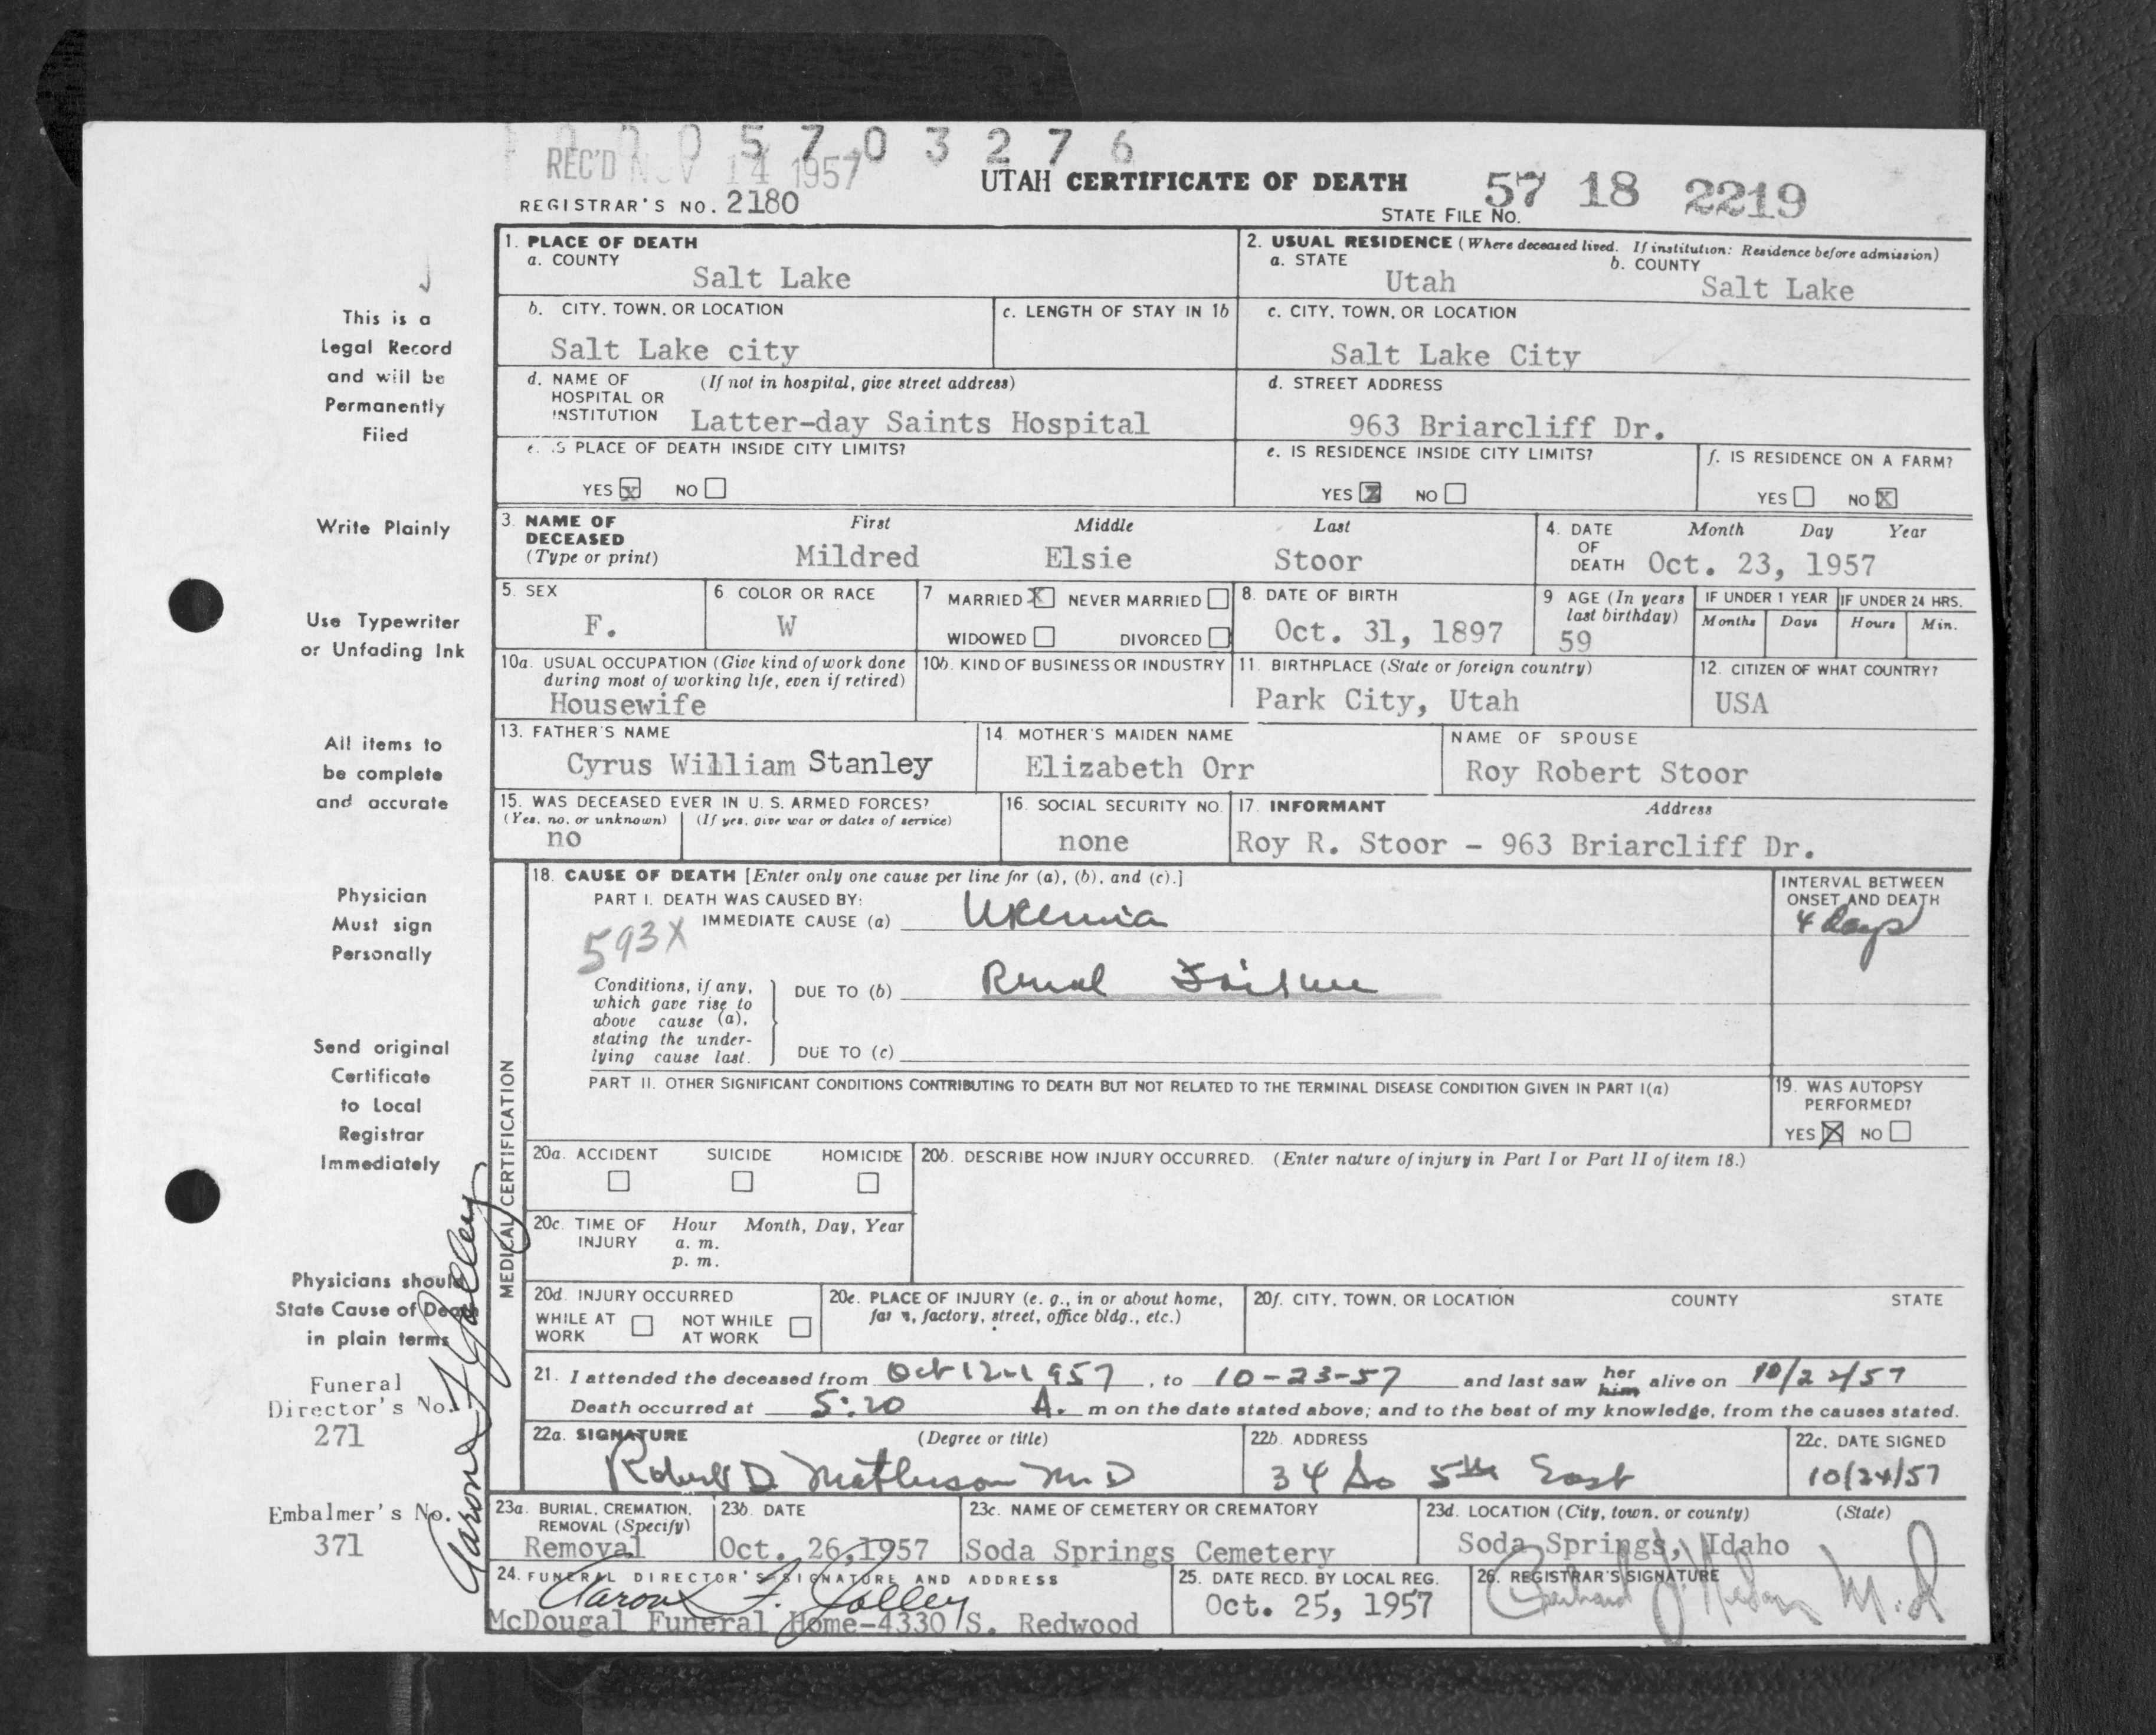 5 7 0 3 2 7 6
REC'D NOV 14 1957
UTAH CERTIFICATE OF DEATH
57 18 2219
REGISTRAR'S NO. 2180
STATE FILE NO.
1. PLACE OF DEATH
a. COUNTY
Salt Lake
2. USUAL RESIDENCE (Where deceased lived. If institution: Residence before admission)
a. STATE
Utah
b. COUNTY
Salt Lake
b. CITY, TOWN, OR LOCATION
Salt Lake city
c. LENGTH OF STAY IN 1b
c. CITY, TOWN, OR LOCATION
Salt Lake City
d. NAME OF HOSPITAL OR INSTITUTION
(If not in hospital, give street address)
Latter-day Saints Hospital
d. STREET ADDRESS
963 Briarcliff Dr.
e. IS PLACE OF DEATH INSIDE CITY LIMITS?
YES x NO
e. IS RESIDENCE INSIDE CITY LIMITS?
YES X NO
f. IS RESIDENCE ON A FARM?
YES NO X
3. NAME OF DECEASED
(Type or print)
First Middle Last
Mildred Elsie Stoor
4. DATE OF DEATH
Month Day Year
Oct. 23, 1957
5. SEX
F.
6. COLOR OR RACE
W
7 MARRIED X NEVER MARRIED
WIDOWED DIVORCED
8. DATE OF BIRTH
Oct. 31, 1897
9 AGE (In years last birthday)
59
IF UNDER 1 YEAR
Months Days
IF UNDER 24 HRS.
Hours Min.
10a. USUAL OCCUPATION (Give kind of work done during most of working life, even if retired)
Housewife
10b. KIND OF BUSINESS OR INDUSTRY
11. BIRTHPLACE (State or foreign country)
Park City, Utah
12. CITIZEN OF WHAT COUNTRY?
USA
13. FATHER'S NAME
Cyrus William Stanley
14. MOTHER'S MAIDEN NAME
Elizabeth Orr
NAME OF SPOUSE
Roy Robert Stoor
15. WAS DECEASED EVER IN U. S. ARMED FORCES?
(Yes, no, or unknown) (If yes, give war or dates of service)
no
16. SOCIAL SECURITY NO.
none
17. INFORMANT Address
Roy R. Stoor - 963 Briarcliff Dr.
MEDICAL CERTIFICATION
18. CAUSE OF DEATH [Enter only one cause per line for (a), (b), and (c).]
PART I. DEATH WAS CAUSED BY:
IMMEDIATE CAUSE (a) Uremia
593X
INTERVAL BETWEEN ONSET AND DEATH
4 days
Conditions, if any, which gave rise to above cause (a), stating the underlying cause last.
DUE TO (b) Renal Failure
DUE TO (c)
PART II. OTHER SIGNIFICANT CONDITIONS CONTRIBUTING TO DEATH BUT NOT RELATED TO THE TERMINAL DISEASE CONDITION GIVEN IN PART I(a)
19. WAS AUTOPSY PERFORMED?
YES X NO
20a. ACCIDENT SUICIDE HOMICIDE
20b. DESCRIBE HOW INJURY OCCURRED. (Enter nature of injury in Part I or Part II of item 18.)
20c. TIME OF INJURY
Hour Month, Day, Year
a. m.
p. m.
20d. INJURY OCCURRED
WHILE AT WORK NOT WHILE AT WORK
20e. PLACE OF INJURY (e. g., in or about home, farm, factory, street, office bldg., etc.)
20f. CITY, TOWN, OR LOCATION COUNTY STATE
21. I attended the deceased from Oct 12-1957, to 10-23-57 and last saw her him alive on 10/22/57
Death occurred at 5:20 A. m on the date stated above; and to the best of my knowledge, from the causes stated.
22a. SIGNATURE (Degree or title)
Robert D. Matheson M.D
22b. ADDRESS
34 So 5th East
22c. DATE SIGNED
10/24/57
23a. BURIAL, CREMATION, REMOVAL (Specify)
Removal
23b. DATE
Oct. 26,1957
23c. NAME OF CEMETERY OR CREMATORY
Soda Springs Cemetery
23d. LOCATION (City, town, or county) (State)
Soda Springs, Idaho
24. FUNERAL DIRECTOR'S SIGNATURE AND ADDRESS
Aaron F. Jolley
McDougal Funeral Home-4330 S. Redwood
25. DATE RECD. BY LOCAL REG.
Oct. 25, 1957
26. REGISTRAR'S SIGNATURE
M.D
This is a
Legal Record
and will be
Permanently
Filed
Write Plainly
Use Typewriter
or Unfading Ink
All items to
be complete
and accurate
Physician
Must sign
Personally
Send original
Certificate
to Local
Registrar
Immediately
Physicians should
State Cause of Death
in plain terms
Funeral
Director's No.
271
Embalmer's No.
371
Aaron F Jolley